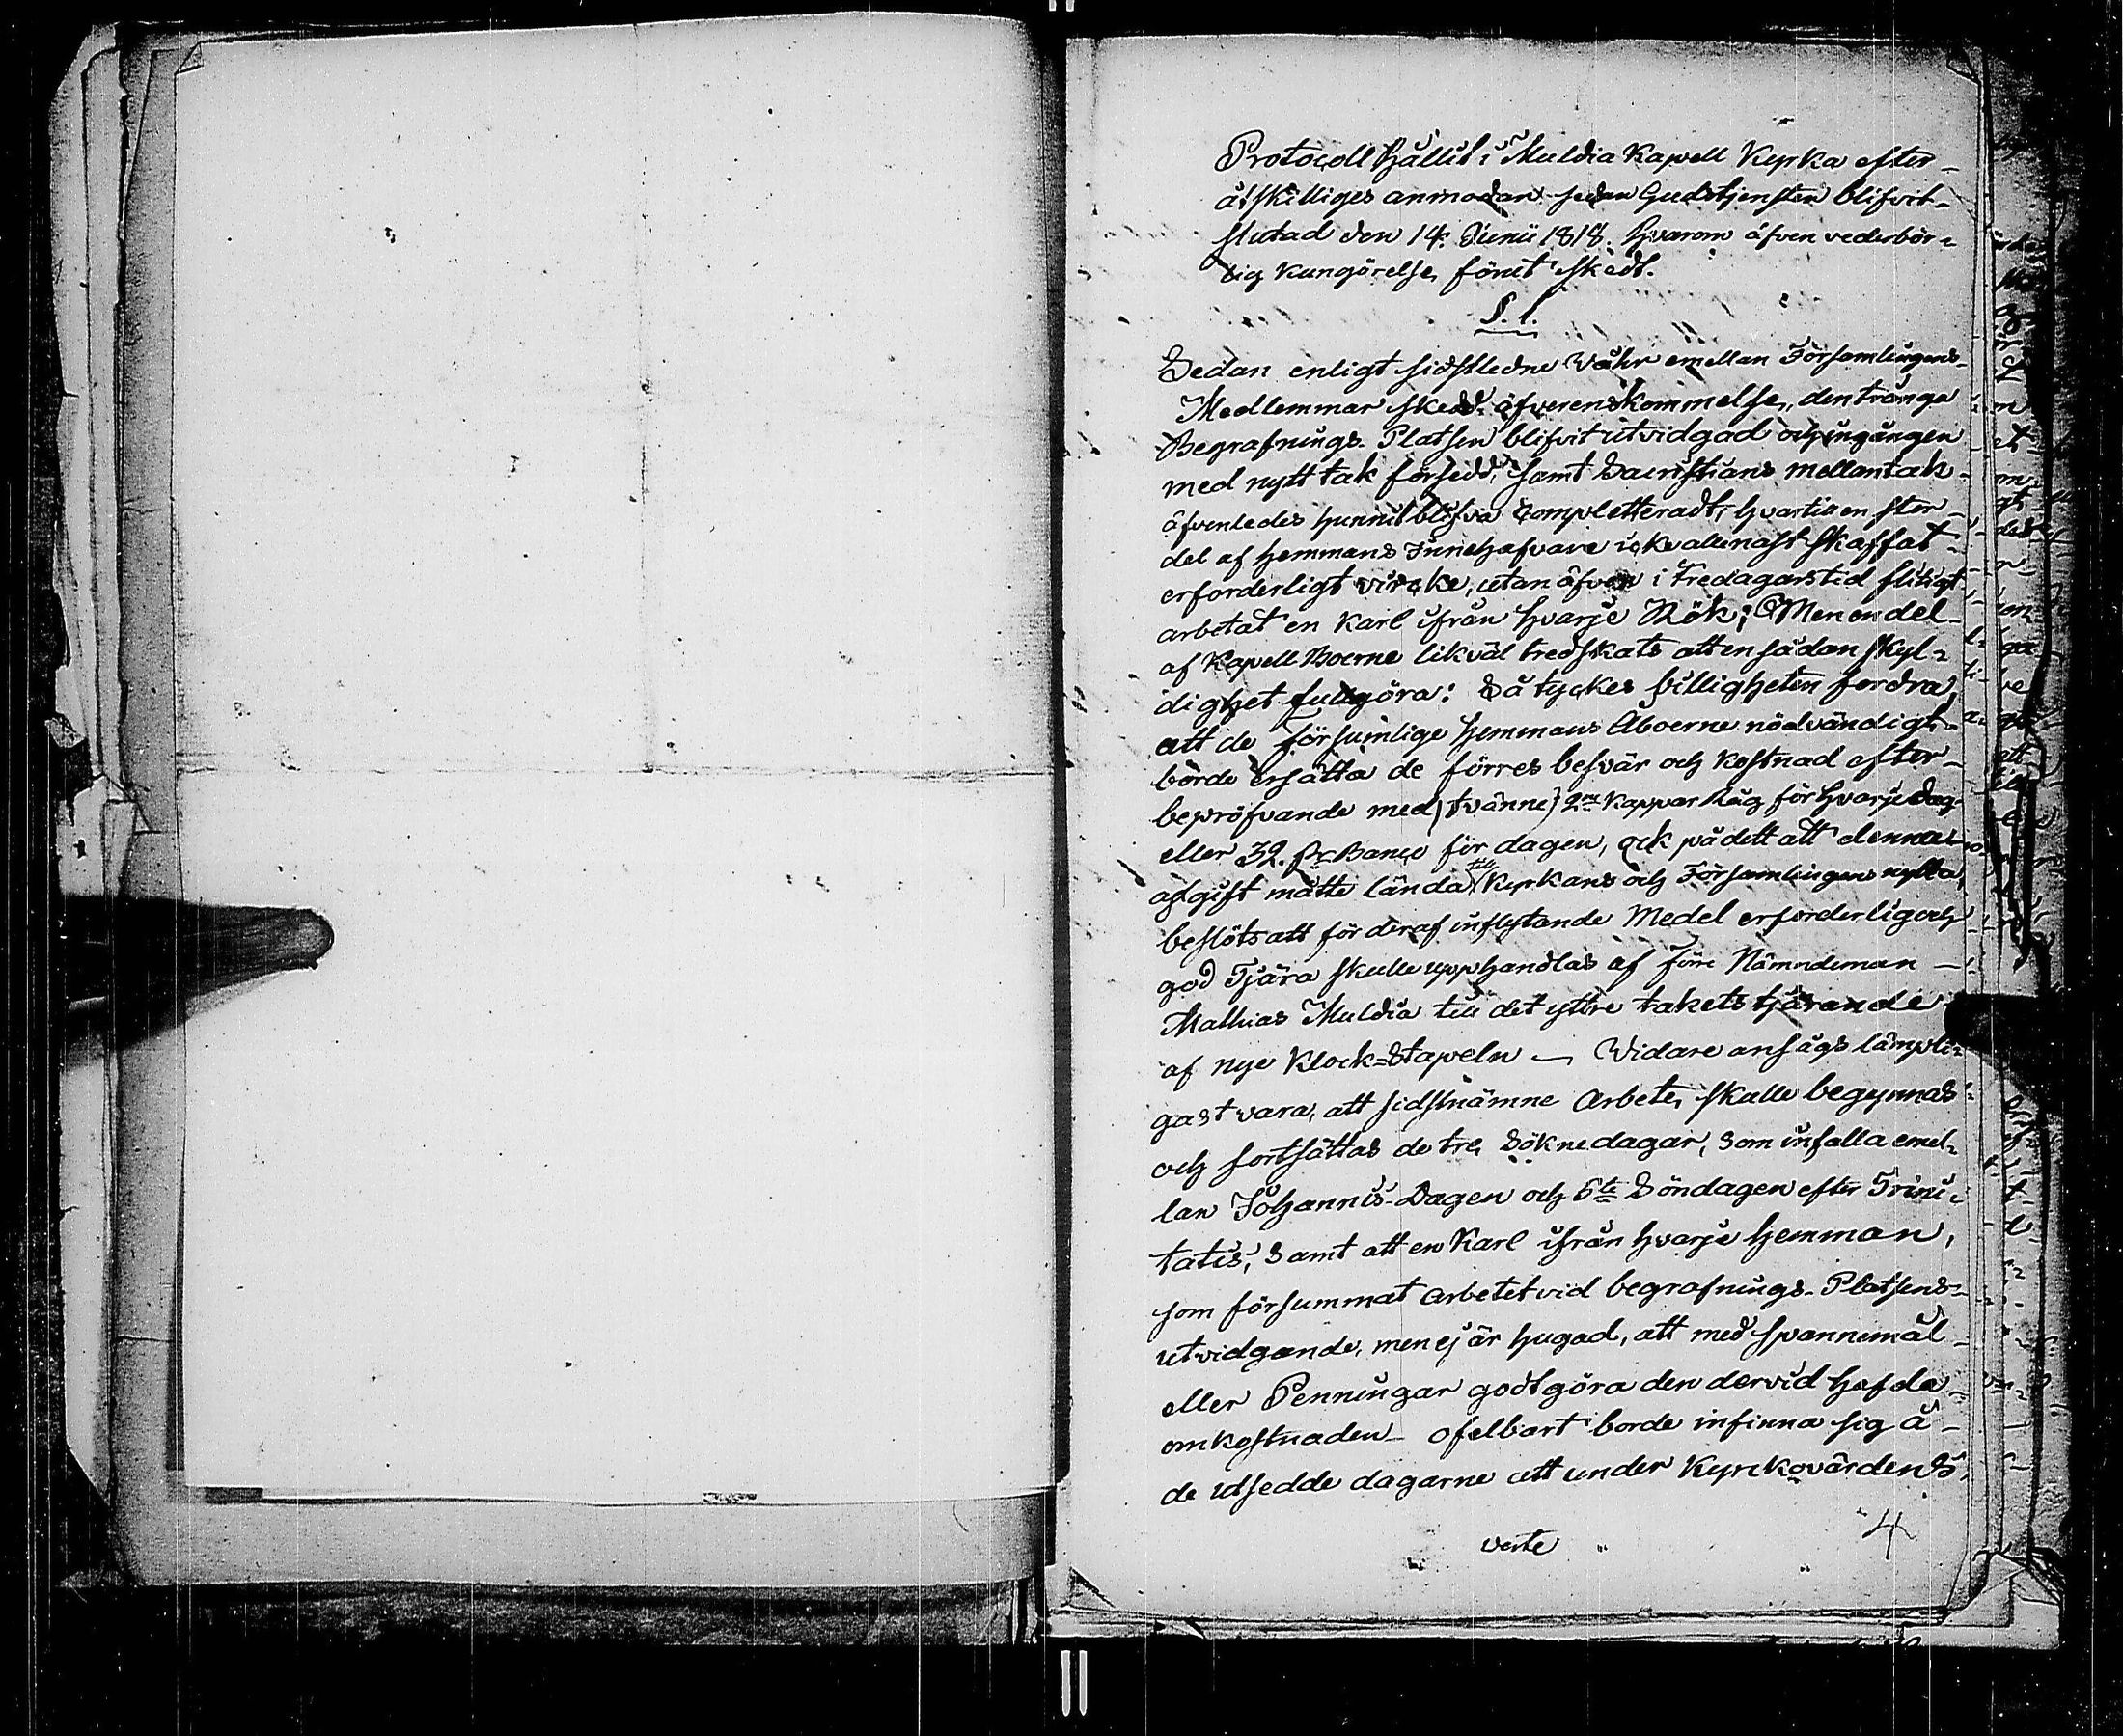 Protocoll hållit i Muldia Kapell Kyrka efter
åtskilliges anmodan sedan Gudstjensten blifvit
slutad den 14. Junii 1818. hvarom äfven vederbör=
lig kungörelse förut skedt.
§. 1.
Sedan enligt sidstledne Wåhr emellan Församlingens
Medlemmar skedd öfverenskommelse, den trånga
Begrafnings Platsen blifvit utvidgad och ingången
med nytt tak försedd, samt Sacristians mellantak
äfvenledes hunnit blifva completteradt, hvartil en stor
del af hemmans Innehafvare icke allenast skaffat
erforderligt vircke, utan äfven i tredagarstid flitigt
arbetat en Karl ifrån hvarje Rök; Men en del
af Kapell Boerne likväl tredskats att en sådan skyl=
dighet fullgöra: Så tyckes billigheten fordra,
att de försumlige hemmans Åboerne nödvändigt
borde ersätta de förres besvär och kostnad efter
bepröfvande med (tvänne) 2ne Kappar Råg för hvarje dag
eller 32. Banco för dagen, ock på dett att denna
afgift måtte lända till Kyrkans och Församlingens nytta,
beslöts att för deraf inflytande Medel erforderlig och
god Tjära skulle upphandlas af förre Nämndeman —
Mathias Muldia till det yttre takets tjärande
af nye Klock=Stapeln — Widare ansågs lämpli=
gast vara, att sidstnämne Arbete, skulle begynnas
och fortsättas de tre Söknedagar, som infalla emel=
lan Johannis-Dagen och 6te Söndagen efter Trini=
tatis, Samt att en Karl ifrån hvarje hemman,
som försummat arbetet vid begrafnings-Platsens
utvidgande, men ej är hugad, att med spannemål
eller Penningar godtgöra den dervid hafda
omkostnaden — ofelbart borde infinna sig å
de utsedde dagarne att under Kyrckovärdens
verte
4